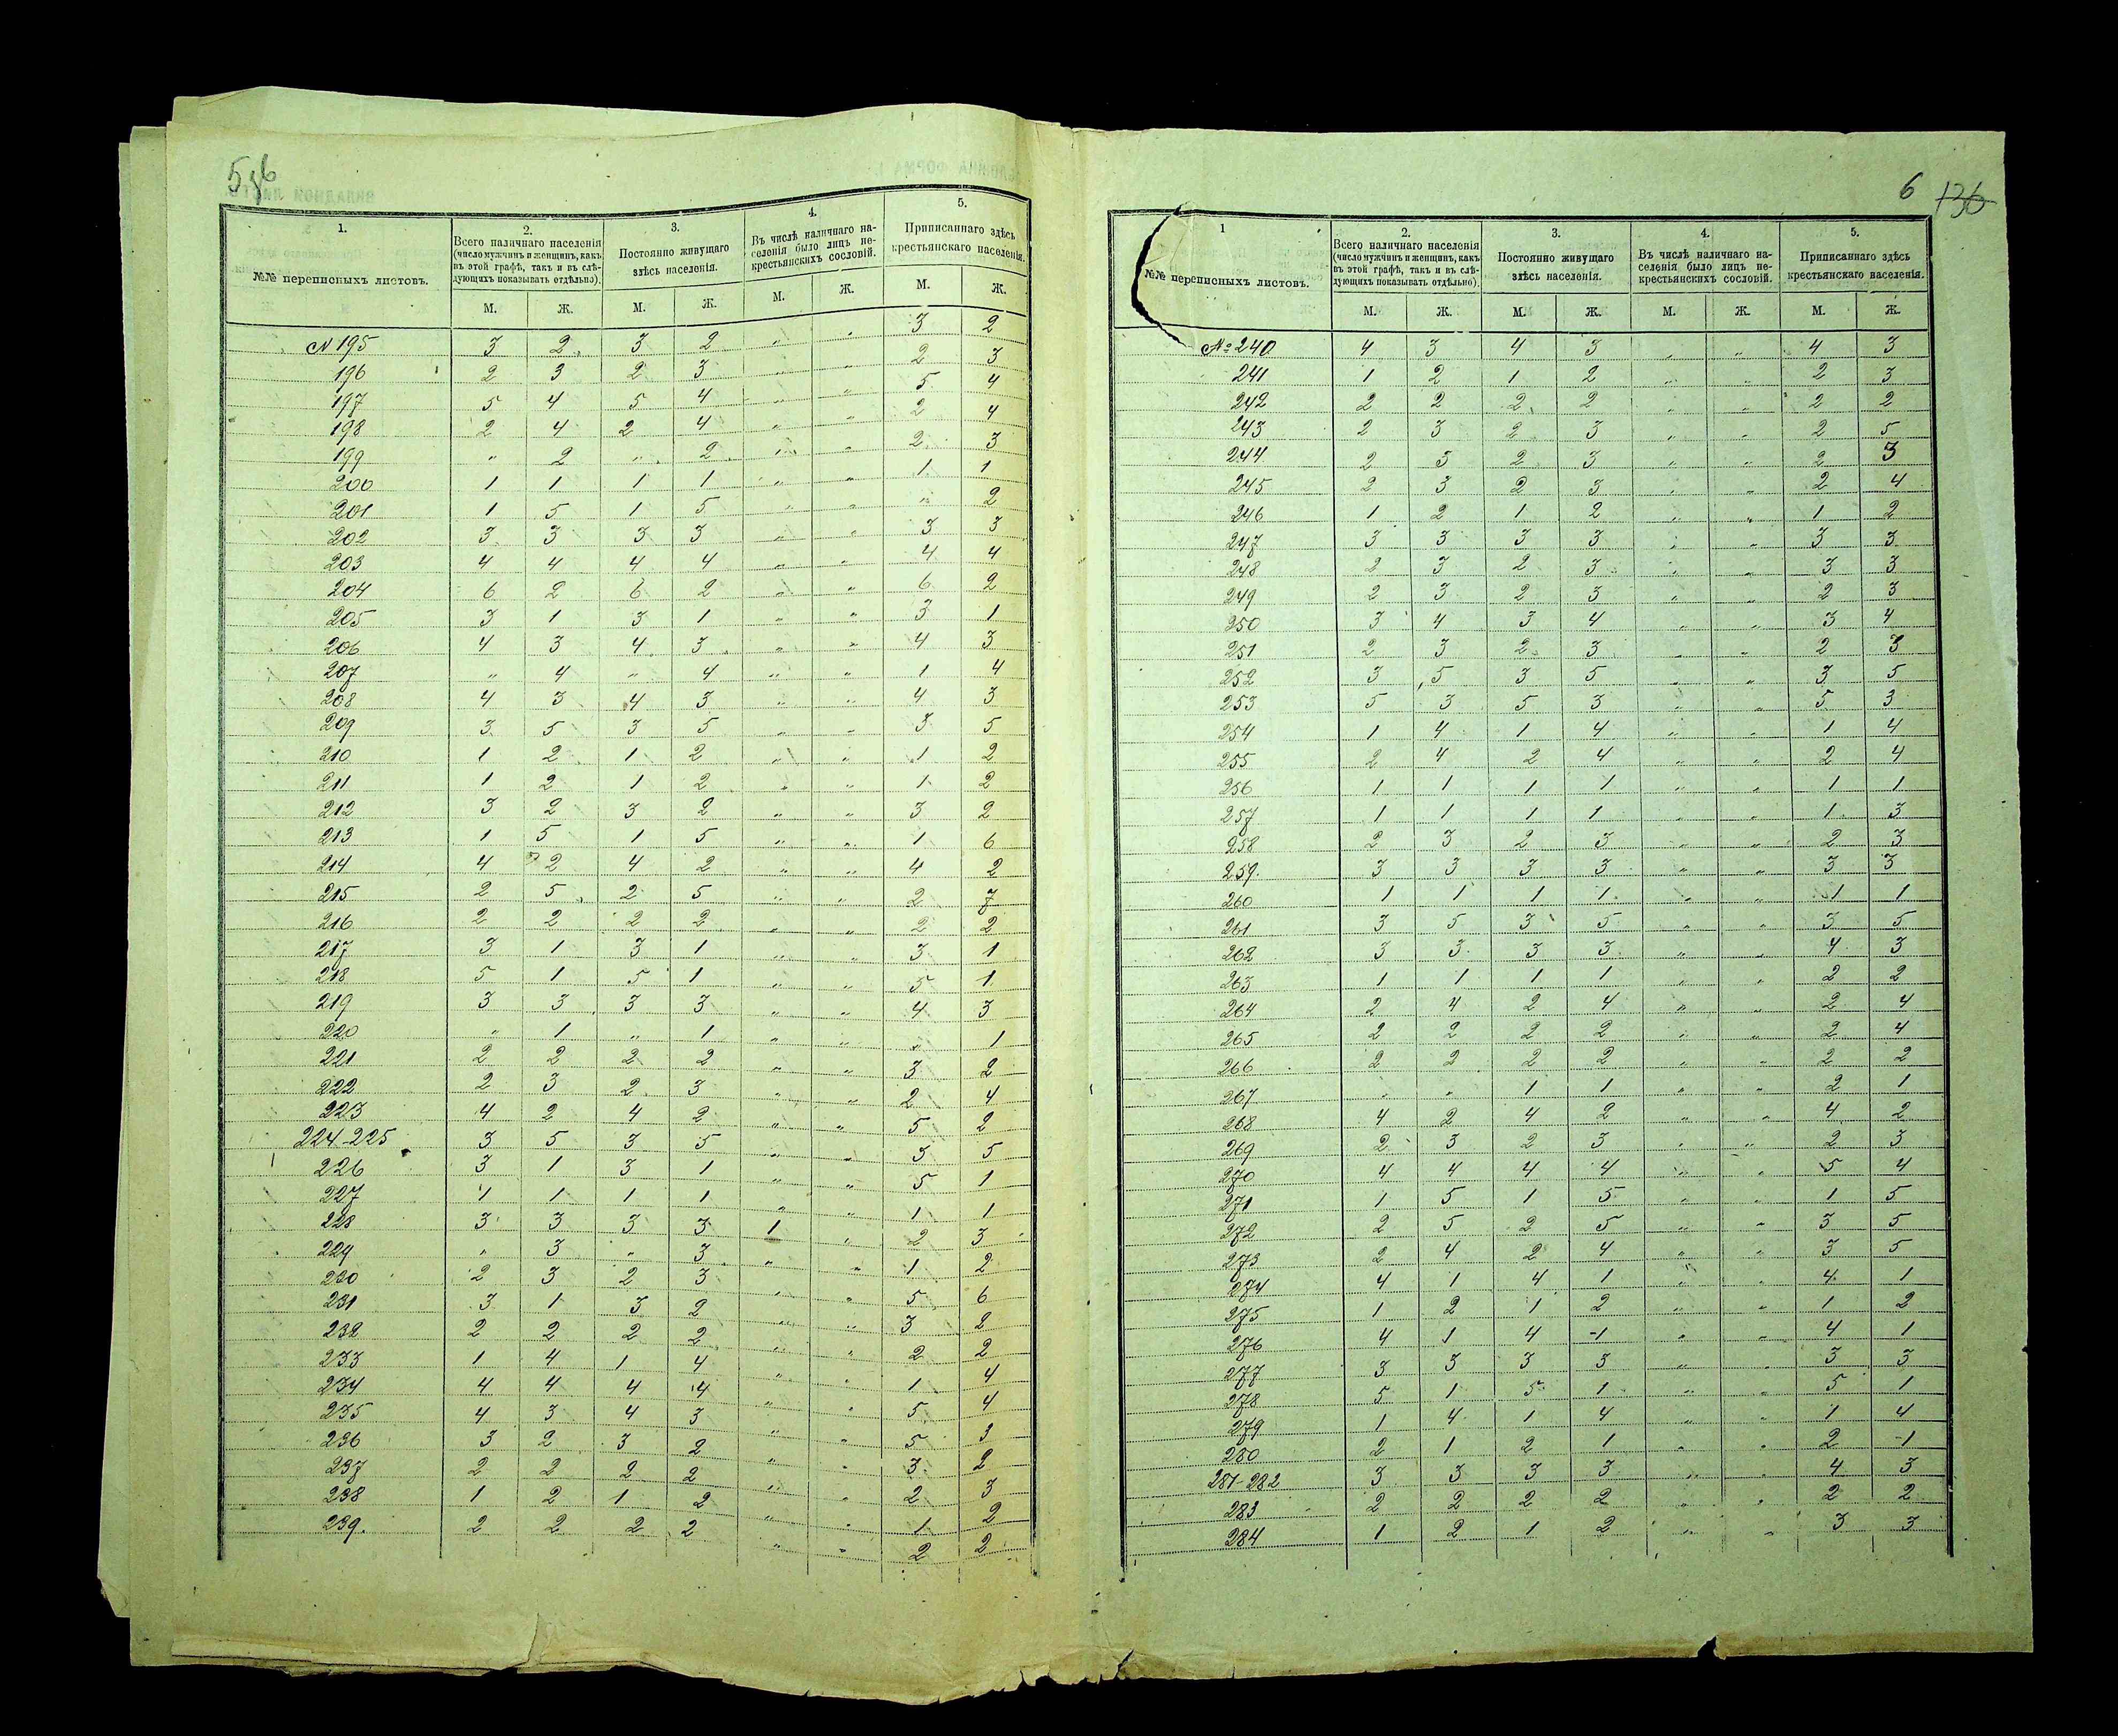 1.
2.
3.
4.
5.
№№ переписныхъ листовъ.
Всего наличнаго населенія (число мужчинъ и женщинъ, какъ въ этой графѣ, такъ и въ слѣдующихъ показывать отдѣльно).
Постоянно живущаго здѣсь населенія.
Въ числѣ наличнаго населенія было лицъ не-крестьянскихъ сословій.
Приписаннаго здѣсь крестьянскаго населенія.
М. Ж. М. Ж. М. Ж. М. Ж.
№ 195 3 2 3 2 " " 3 2
196 2 3 2 3 " " 2 3
197 5 4 5 4 " " 5 4
198 2 4 2 4 " " 2 4
199 " 2 " 2 " " 2 3
200 1 1 1 1 " " 1 1
201 1 5 1 5 " " " 2
202 3 3 3 3 " " 3 3
203 4 4 4 4 " " 4 4
204 6 2 6 2 " " 6 2
205 3 1 3 1 " " 3 1
206 4 3 4 3 " " 4 3
207 " 4 " 4 " " 1 4
208 4 3 4 3 " " 4 3
209 3 5 3 5 " " 3 5
210 1 2 1 2 " " 1 2
211 1 2 1 2 " " 1 2
212 3 2 3 2 " " 3 2
213 1 5 1 5 " " 1 6
214 4 2 4 2 " " 4 2
215 2 5 2 5 " " 2 7
216 2 2 2 2 " " 2 2
217 3 1 3 1 " " 3 1
218 5 1 5 1 " " 5 1
219 3 3 3 3 " " 4 3
220 " 1 " 1 " " " 1
221 2 2 2 2 " " 3 2
222 2 3 2 3 " " 2 4
223 4 2 4 2 " " 5 2
224-225 3 5 3 5 " " 3 5
226 3 1 3 1 " " 5 1
227 1 1 1 1 " " 1 1
228 3 3 3 3 1 " 2 3
229 " 3 " 3 " " 1 2
230 2 3 2 3 " " 5 6
231 3 1 3 2 " " 3 2
232 2 2 2 2 " " 2 2
233 1 4 1 4 " " 1 4
234 4 4 4 4 " " 5 4
235 4 3 4 3 " " 5 3
236 3 2 3 2 " " 3 2
237 2 2 2 2 " " 2 3
238 1 2 1 2 " " 1 2
239. 2 2 2 2 " " 2 2
6 136
1
2.
3.
4.
5.
№№ переписныхъ листовъ.
Всего наличнаго населенія (число мужчинъ и женщинъ, какъ въ этой графѣ, такъ и въ слѣдующихъ показывать отдѣльно).
Постоянно живущаго здѣсь населенія.
Въ числѣ наличнаго населенія было лицъ не-крестьянскихъ сословій.
Приписаннаго здѣсь крестьянскаго населенія.
М. Ж. М. Ж. М. Ж. М. Ж.
№ 240 4 3 4 3 " " 4 3
241 1 2 1 2 " " 2 3
242 2 2 2 2 " " 2 2
243 2 3 2 3 " " 2 5
244 2 3 2 3 " " 2 3
245 2 3 2 3 " " 2 4
246 1 2 1 2 " " 1 2
247 3 3 3 3 " " 3 3
248 2 3 2 3 " " 3 3
249 2 3 2 3 " " 2 3
250 3 4 3 4 " " 3 4
251 2 3 2 3 " " 2 3
252 3 5 3 5 " " 3 5
253 5 3 5 3 " " 5 3
254 1 4 1 4 " " 1 4
255 2 4 2 4 " " 2 4
256 1 1 1 1 " " 1 1
257 1 1 1 1 " " 1 3
258 2 3 2 3 " " 2 3
259. 3 3 3 3 " " 3 3
260 1 1 1 1 " " 1 1
261 3 5 3 5 " " 3 5
262 3 3 3 3 " " 4 3
263 1 1 1 1 " " 2 2
264 2 4 2 4 " " 2 4
265 2 2 2 2 " " 2 4
266 2 2 2 2 " " 2 2
267 " " 1 1 " " 2 1
268 4 2 4 2 " " 4 2
269 2 3 2 3 " " 2 3
270 4 4 4 4 " " 5 4
271 1 5 1 5 " " 1 5
272 2 5 2 5 " " 3 5
273 2 4 2 4 " " 3 5
274 4 1 4 1 " " 4 1
275 1 2 1 2 " " 1 2
276 4 1 4 1 " " 4 1
277 3 3 3 3 " " 3 3
278 5 1 5 1 " " 5 1
279 1 4 1 4 " " 1 4
280 2 1 2 1 " " 2 1
281-282 3 3 3 3 " " 4 3
283 2 2 2 2 " " 2 2
284 1 2 1 2 " " 3 3